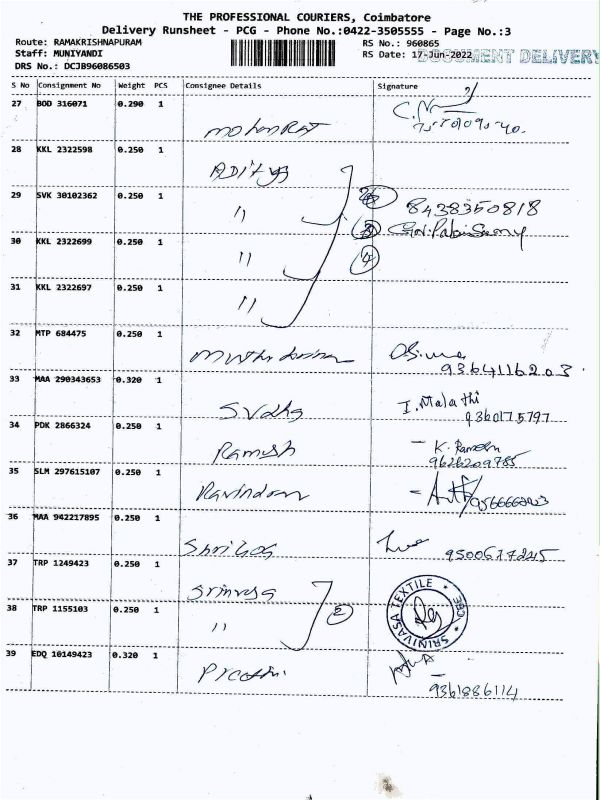 THE PROFESSIONAL COURIERS, Coimbatore
Delivery Runsheet - PCG - Phone No.:0422-3505555 - Page No.:3
Route: RAMAKRISHNAPURAM
Staff: MUNIYANDI
DRS No.: DCJB96086503
RS No.: 960865
RS Date: 17-Jun-2022
DOCUMENT DELIVERY
S No Consignment No Weight PCS Consignee Details Signature
27 BOD 316071 0.290 1
28 KKL 2322598 0.250 1
29 SVK 30102362 0.250 1 " 8438350818
30 KKL 2322699 0.250 1 "
31 KKL 2322697 0.250 1 "
32 MTP 684475 0.250 1 9364116203
33 MAA 290343653 0.320 1 I. Malathi
9360175797
34 PDK 2866324 0.250 1 Ramesh K. Ramesh
9626209785
35 SLM 297615107 0.250 1
36 MAA 942217895 0.250 1 9500677245
37 TRP 1249423 0.250 1
38 TRP 1155103 0.250 1 " 2
SRINIVASA TEXTILE CBE
39 EDQ 10149423 0.320 1
9361886114